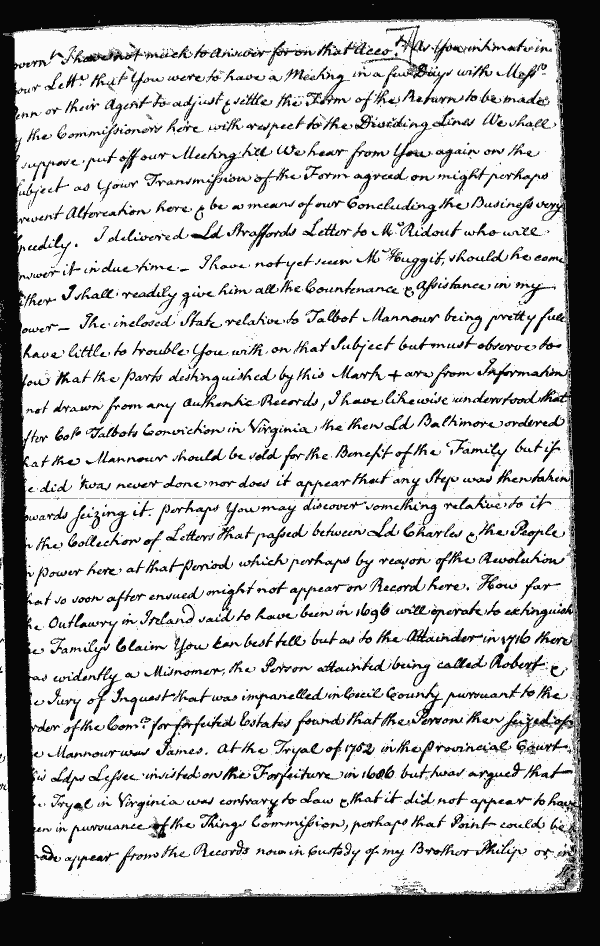 overnt I have not much to Answer for on that Acco.t As You intimate in
our Lett.r that You were to have a Meeting in a few Days with Mess.rs
enn or their Agent to adjust & settle the Form of the Return to be made
y the Commissioners here with respect to the Dividing Lines We shall
suppose put off our Meeting till We hear from You again on the
ubject as Your Transmission of the Form agreed on might perhaps
revent Altercation here & be a means of our Concluding the Business very
peedily. I delivered Ld Straffords Letter to Mr Ridout who will
nswer it in due time _ I have not yet seen Mr Huggit, should he come
ither I shall readily give him all the Countenance & Assistance in my
ower _ The inclosed State relative to Talbot Mannour being pretty full
have little to trouble You with on that Subject but must observe to
You that the Parts destinguished by this Mark + are from Information
not drawn from any Authentic Records, I have likewise understood that
fter Colo Talbots Conviction in Virginia the then Ld Baltimore ordered
hat the Mannour should be sold for the Benefit of the Family but if
e did 'twas never done nor does it appear that any Step was then taken
owards seizing it. Perhaps You may discover something relative to it
n the Collection of Letters that passed between Ld Charles & the People
n Power here at that Period which perhaps by reason of the Revolution
hat so soon after ensued might not appear on Record here. How far
he Outlawry in Ireland said to have been in 1696 will operate to extinguish
e Family's Claim You can best tell but as to the Attainder in 1716 there
as evidently a Misnomer, the Person attainted being called Robert &
e Jury of Inquest that was impanelled in Cecil County pursuant to the
rder of the Com.rs for forfeited Estates found that the Person then seized of
e Mannour was James. At the Tryal of 1752 in the Provincial Court
his Ldps Lessee insisted on the Forfeiture in 1686 but 'twas argued that
he Tryal in Virginia was contrary to Law & that it did not appear to have
een in pursuance of the Kings Commission, perhaps that Point could be
ade appear from the Records now in Custody of my Brother Philip or in